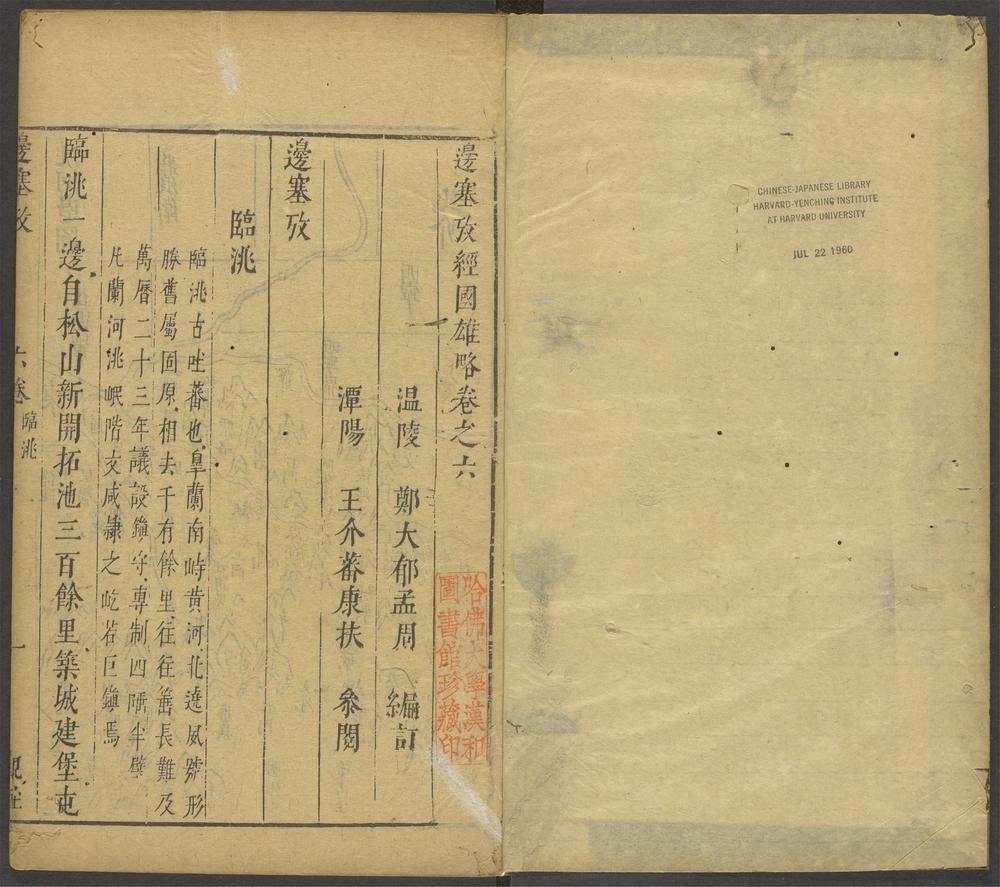 CHINESE-JAPANESE LIBRARY
HARVARD-YENCHING INSTITUTE
AT HARVARD UNIVERSITY
JUL 22 1960
邊塞攷經國雄略卷之六
溫陵 鄭大郁孟周 編訂
潭陽 王介蕃康扶 叅閱
哈佛大學漢和
圖書館珍藏印
邊塞攷
臨洮
臨洮古吐蕃也皐蘭南峙黄河北遶風號形
勝舊屬固原相去千有餘里往往鞭長難及
萬曆二十三年議設鎮守專制四陲半壁
凡蘭河洮岷階文咸隷之屹若巨鎮焉
臨洮一邊自松山新開拓池三百餘里築城建堡屯
邊塞攷 六卷 臨洮 一